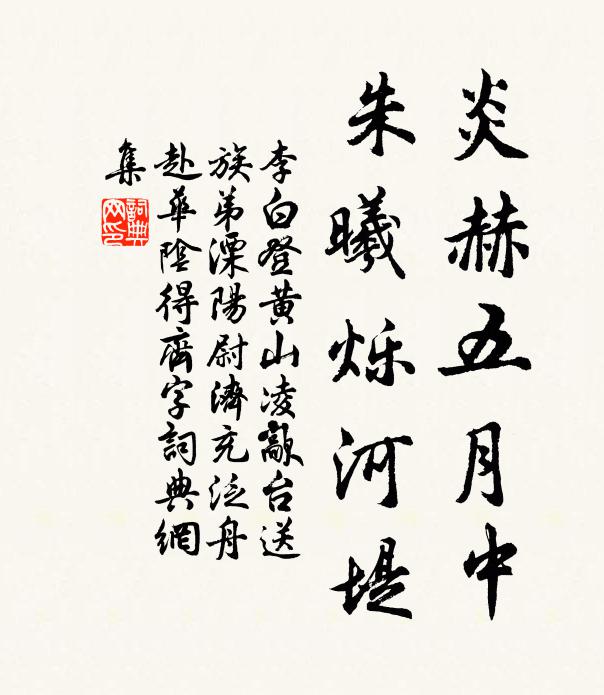 炎赫五月中
朱曦烁河堤
李白登黄山凌歊台送
族弟溧陽尉濟充泛舟
赴華陰得齊字詞典網
集
詞典
网